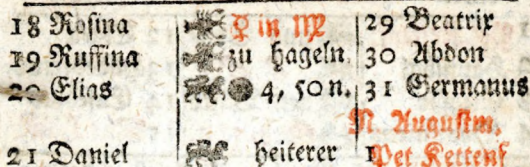 18 Rosina ♀ in ♍ 29 Beatrix
19 Ruffina zu hageln 30 Abdon
20 Elias ● 4, 50 n. 31 Germanus
N. Augustm.
21 Daniel heiterer 1 Pet Kettenf